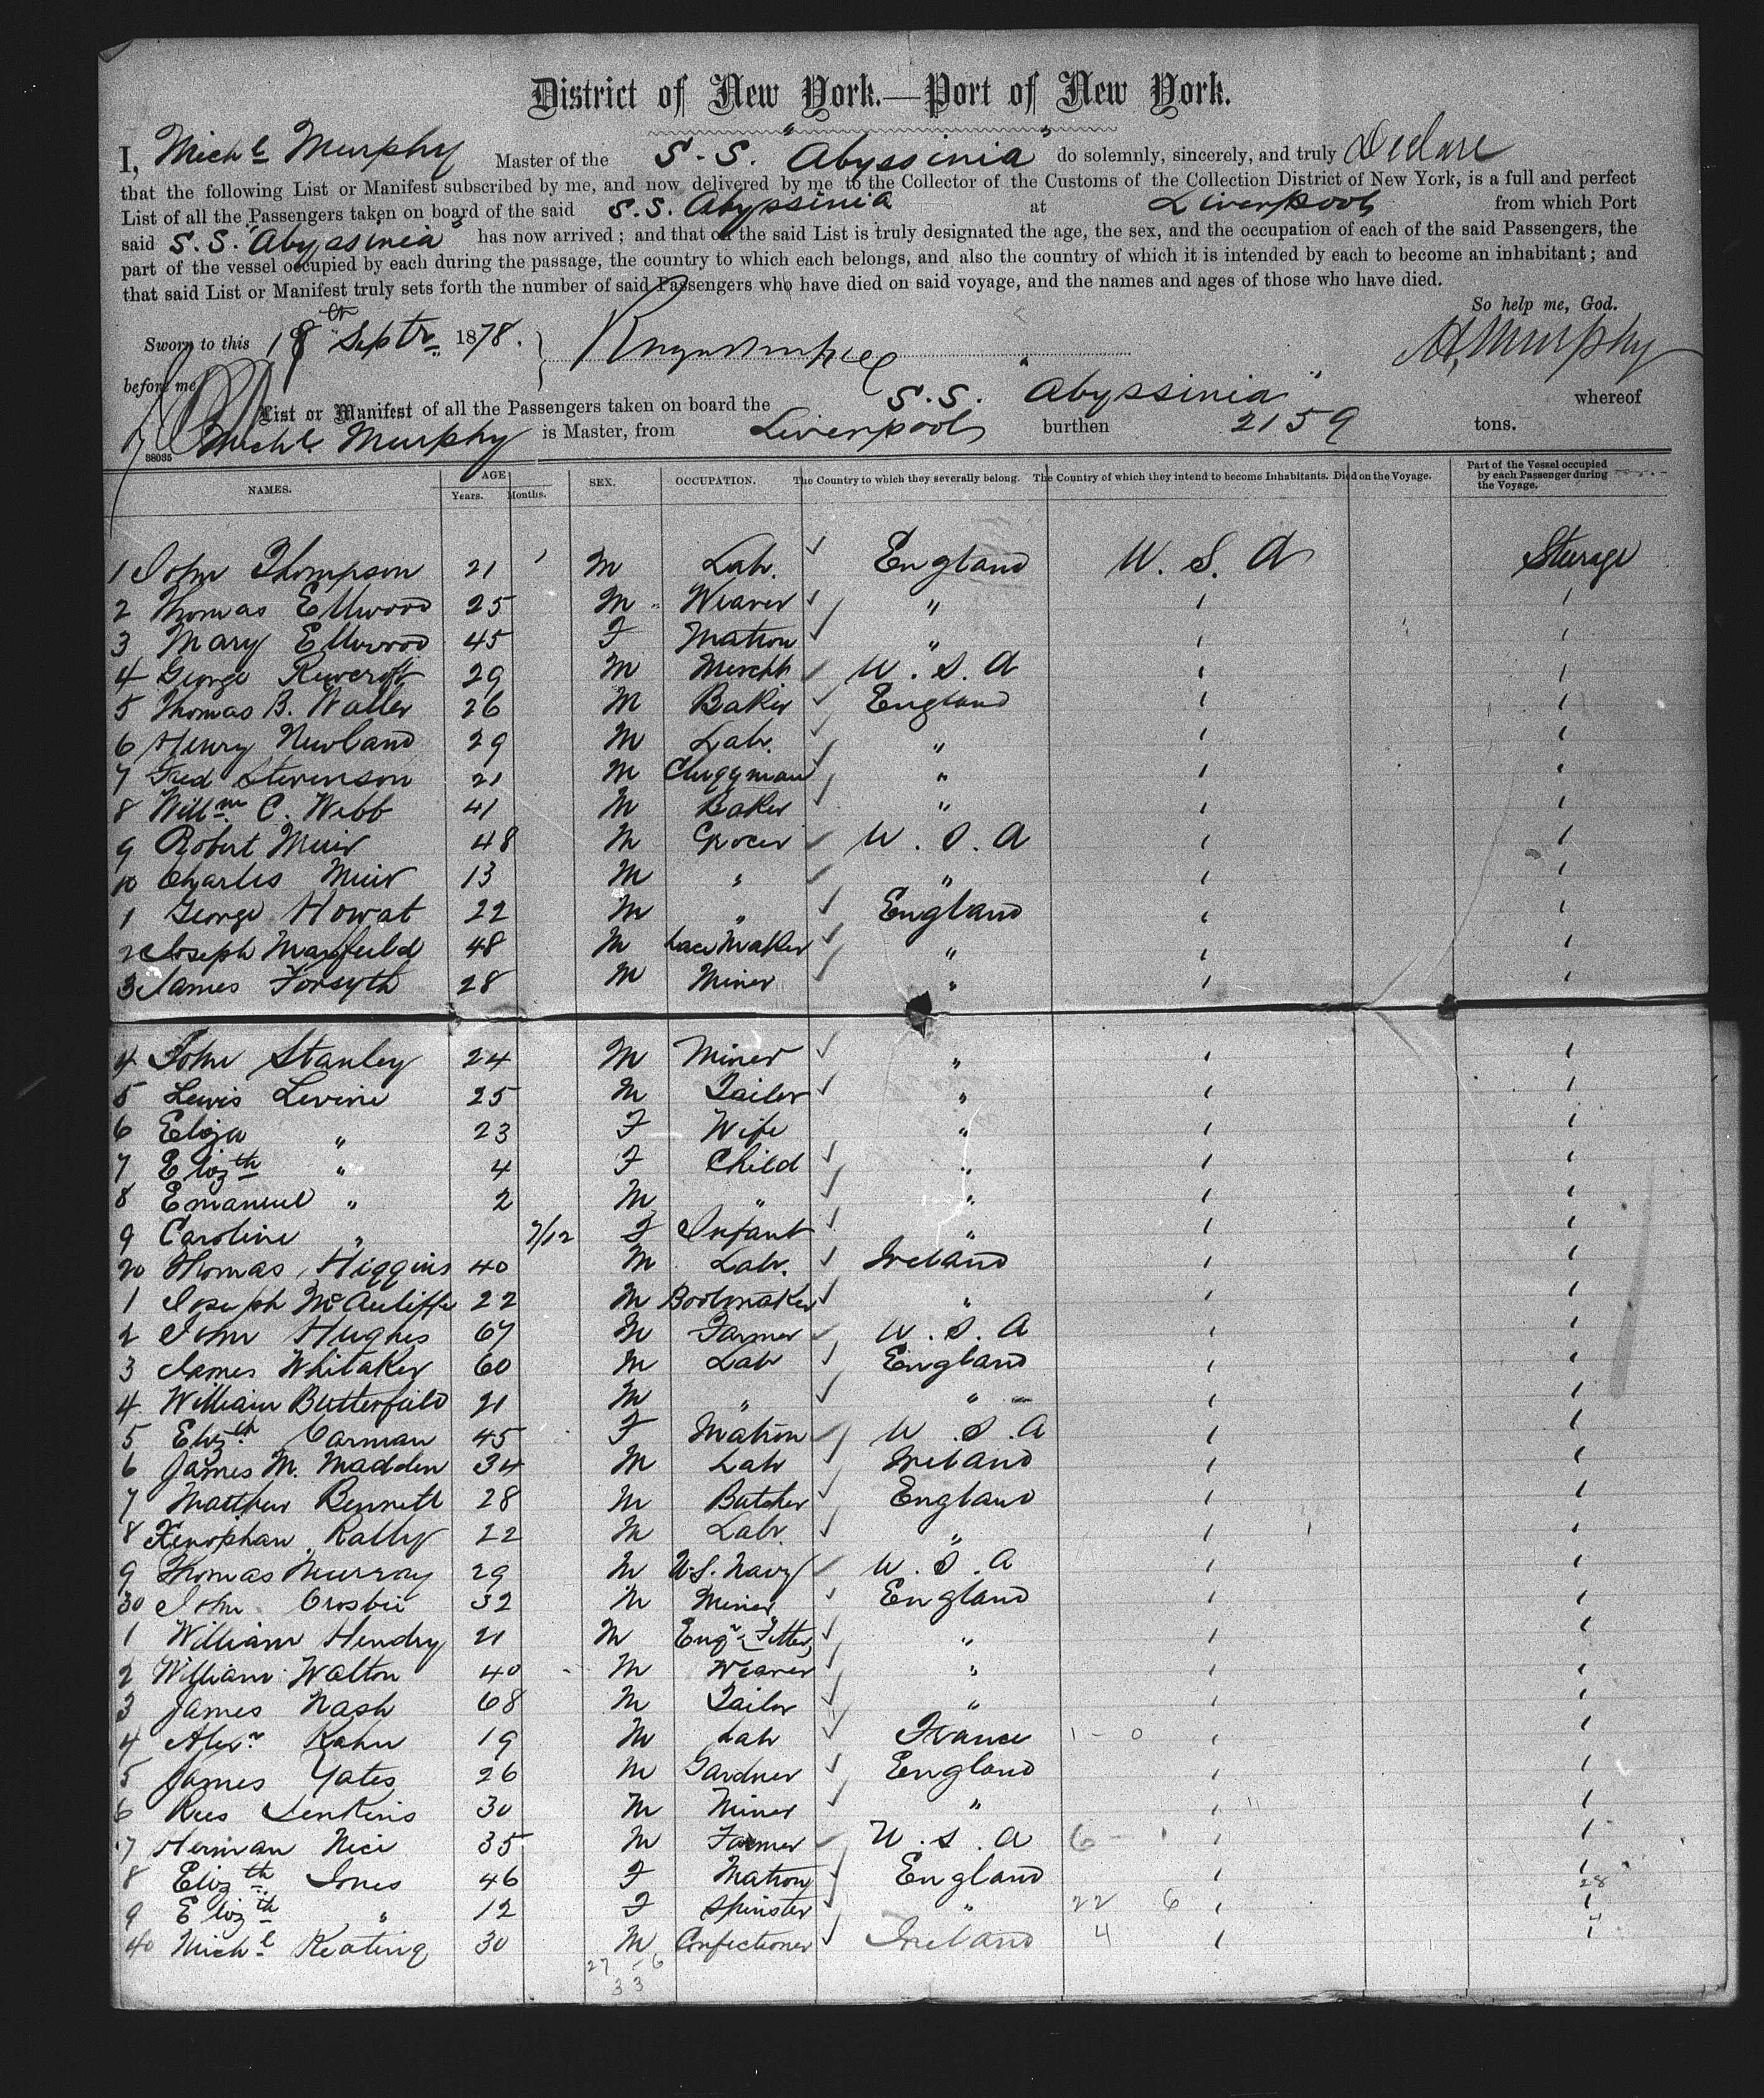 District of New York.—Port of New York.
I, Michl Murphy Master of the S.S. Abyssinia do solemnly, sincerely, and truly Declare
that the following List or Manifest subscribed by me, and now delivered by me to the Collector of the Customs of the Collection District of New York, is a full and perfect
List of all the Passengers taken on board of the said S.S. Abyssinia at Liverpool from which Port
said S.S. "Abyssinia" has now arrived; and that on the said List is truly designated the age, the sex, and the occupation of each of the said Passengers, the
part of the vessel occupied by each during the passage, the country to which each belongs, and also the country of which it is intended by each to become an inhabitant; and
that said List or Manifest truly sets forth the number of said Passengers who have died on said voyage, and the names and ages of those who have died.
So help me, God.
Sworn to this 18th Septr 1878. M. Murphy
before me
List or Manifest of all the Passengers taken on board the S.S. "Abyssinia" whereof
Michl Murphy is Master, from Liverpool burthen 2159 tons.
38035
NAMES. AGE Years. Months. SEX. OCCUPATION. The Country to which they severally belong. The Country of which they intend to become Inhabitants. Died on the Voyage. Part of the Vessel occupied by each Passenger during the Voyage.
1 John Thompson 21 M Labr. England U.S.A Sterage
2 Thomas Ellwood 25 M Weaver " "
3 Mary Ellwood 45 F Matron " "
4 George Rewcroft 29 M Mercht U.S.A "
5 Thomas B. Waller 26 M Baker England "
6 Henry Newland 29 M Labr. " "
7 Fred Stevenson 21 M Clergyman " "
8 Willm C. Webb 41 M Baker " "
9 Robert Muir 48 M Grocer U.S.A "
10 Charles Muir 13 M " " "
1 George Howat 22 M " England "
2 Joseph Mayfield 48 M Lace Maker " "
3 James Forsyth 28 M Miner " "
4 John Stanley 24 M Miner " "
5 Lewis Levine 25 M Tailor " "
6 Eliza " 23 F Wife " "
7 Elizth " 4 F Child " "
8 Emanuel " 2 M " " "
9 Caroline " 7/12 F Infant " "
20 Thomas Higgins 40 M Labr. Ireland "
1 Joseph McAuliffe 22 M Bootmaker " "
2 John Hughes 67 M Farmer U.S.A "
3 James Whitaker 60 M Labr England "
4 William Butterfield 21 M " " "
5 Elizth Carman 45 F Matron U.S.A "
6 James M. Madden 34 M Labr Ireland "
7 Matthew Bennett 28 M Butcher England "
8 Xenophan Rally 22 M Labr " "
9 Thomas Murray 29 M U.S. Navy U.S.A "
30 John Crosbie 32 M Miner England "
1 William Hendry 21 M Engr Fitter " "
2 William Walton 40 M Weaver " "
3 James Nash 68 M Tailor " "
4 Alexr Kahn 19 M Labr France 1 - 0 "
5 James Yates 26 M Gardner England "
6 Rees Jenkins 30 M Miner " "
7 Herman Nice 35 M Farmer U.S.A 6 - 1 "
8 Elizth Jones 46 F Matron England " 28
9 Elizth " 12 F Spinster " 22 6 "
40 Michl Keating 30 M Confectioner Ireland 4 "
27 - 6
33